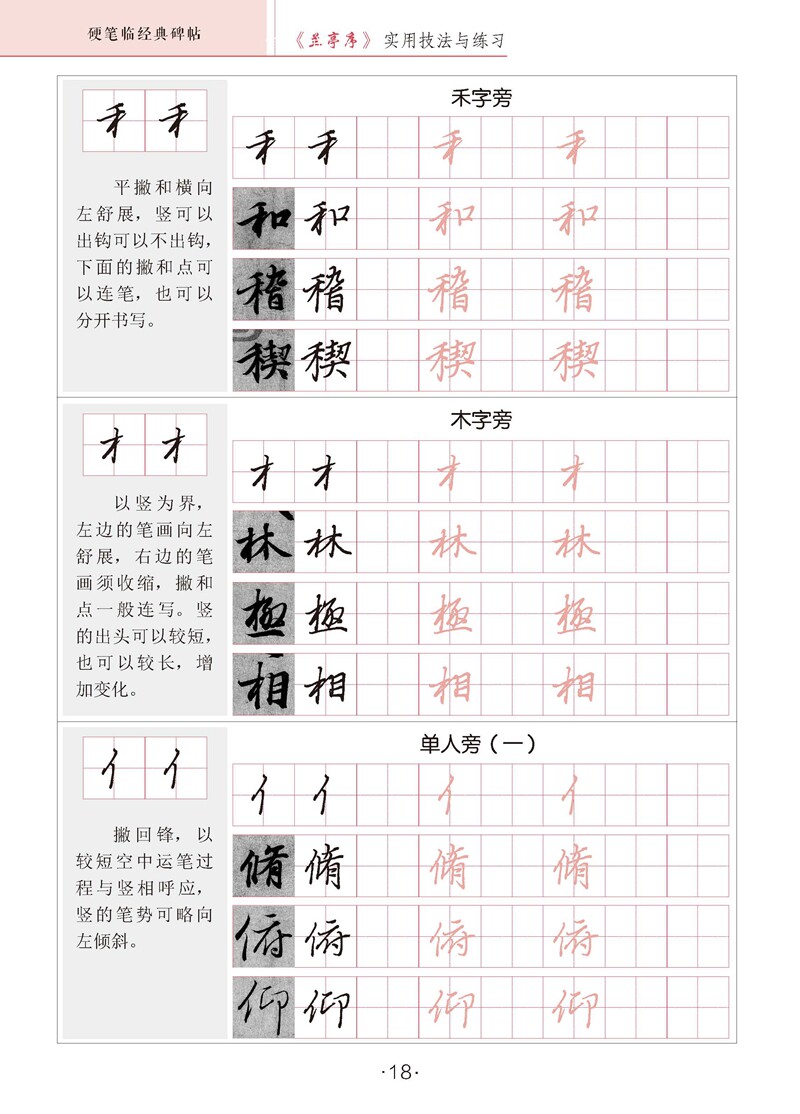 硬笔临经典碑帖
《兰亭序》实用技法与练习
禾字旁
禾 禾
禾 禾 禾 禾
平撇和横向
左舒展，竖可以
出钩可以不出钩，
下面的撇和点可
以连笔，也可以
分开书写。
和 和 和 和
稽 稽 稽 稽
稧 稧 稧 稧
木字旁
木 木
木 木 木 木
以竖为界，
左边的笔画向左
舒展，右边的笔
画须收缩，撇和
点一般连写。竖
的出头可以较短，
也可以较长，增
加变化。
林 林 林 林
極 極 極 極
相 相 相 相
单人旁（一）
亻 亻
亻 亻 亻 亻
撇回锋，以
较短空中运笔过
程与竖相呼应，
竖的笔势可略向
左倾斜。
脩 脩 脩 脩
俯 俯 俯 俯
仰 仰 仰 仰
·18·